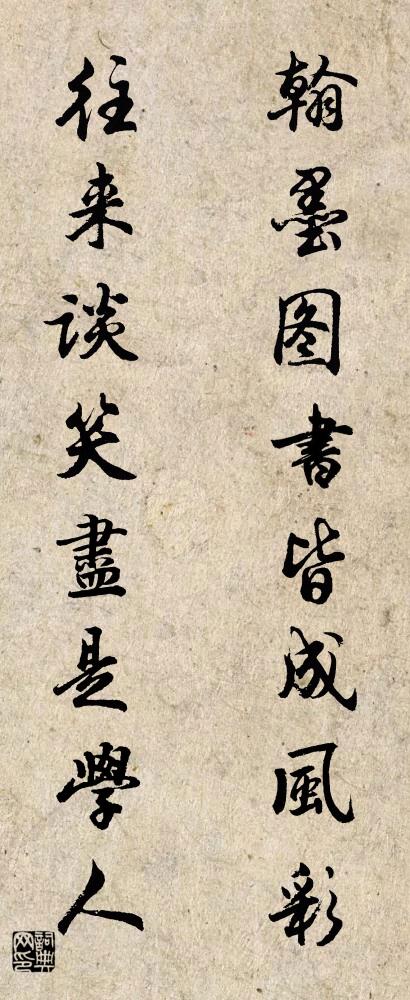 翰墨图書皆成風彩
往来谈笑盡是學人
詞典网印